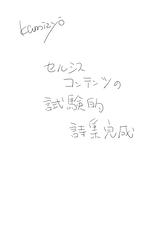 kamizyo
セルシス
コンテンツの
試験的
詩集完成